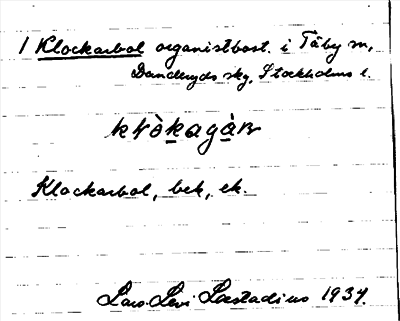 1 Klockarbol organistbost. i Täby sn,
Danderyds skg, Stockholms l.
Klockarbol, bek, ek.
Lars Levi Læstadius 1937.